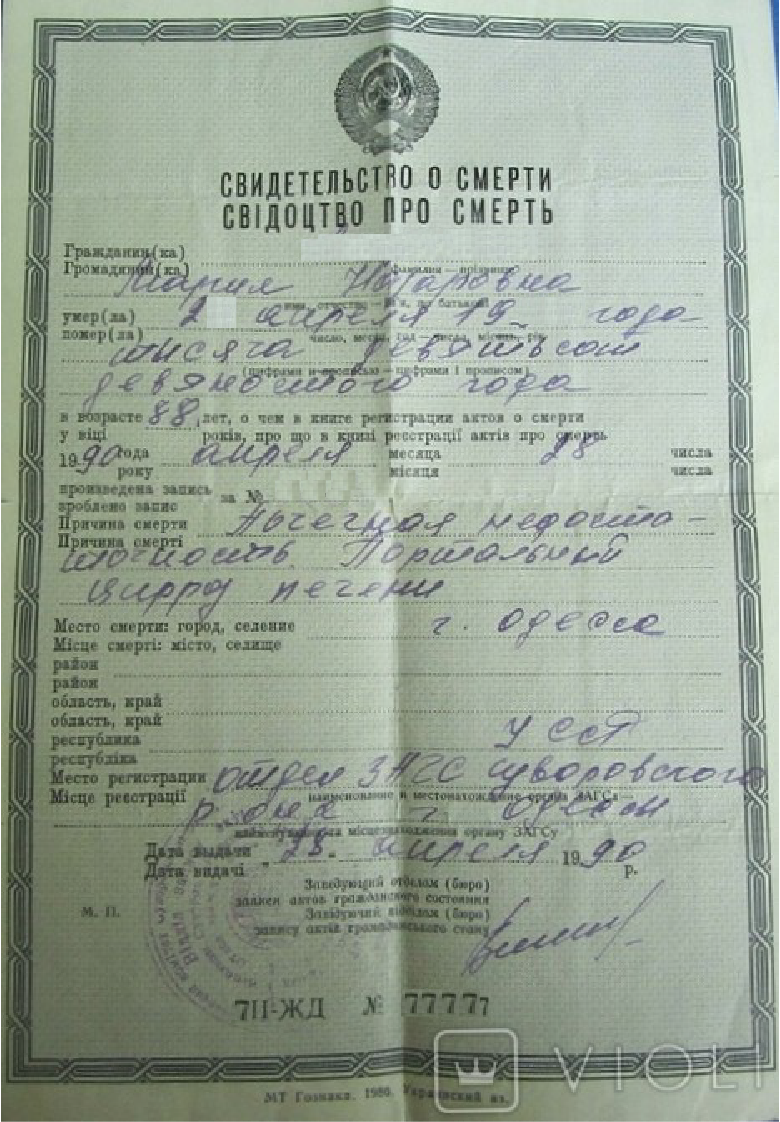 СВИДЕТЕЛЬСТВО О СМЕРТИ
СВІДОЦТВО ПРО СМЕРТЬ
Гражданин(ка)
Громадянин(ка)
фамилия — прізвище
Мария
умер(ла) 2 апреля 19 года
помер(ла)
число, месяц, год — число, місяць, рік
тысяча девятьсот
(цифрами и прописью — цифрами і прописом)
девяностого года
в возрасте 88 лет, о чем в книге регистрации актов о смерти
у віці років, про що в книзі реєстрації актів про смерть
1990 года апреля месяца 28 числа
року місяця числа
произведена запись за №
зроблено запис
Причина смерти Почечная недоста-
Причина смерті
точность. Портальный
цирроз печени
Место смерти: город, селение г. Одесса
Місце смерті: місто, селище
район
район
область, край
область, край
республика УССР
республіка
Место регистрации отдел ЗАГС Суворовского
Місце реєстрації наименование и местонахождение органа ЗАГСа
района г. Одессы
найменування та місцезнаходження органу ЗАГСу
Дата выдачи „28“ апреля 1990
Дата видачі р.
Заведующий отделом (бюро)
записи актов гражданского состояния
М. П.
Завідуючий відділом (бюро)
запису актів громадянського стану
7II-ЖД № 77777
МТ Гознака. 1980. Украинский яз.
VIOLI